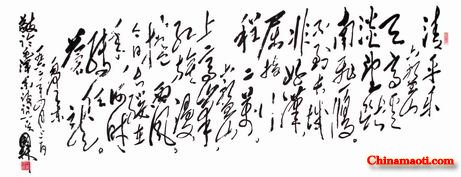 清平乐
六盘山
天高云
淡望断
南飞雁
不到长城
非好汉
屈指行
程二万
六盘山
上高峰
红旗漫
卷西风
今日长缨在
手何时
缚住
苍龙
毛泽东
Chinamaoti.com